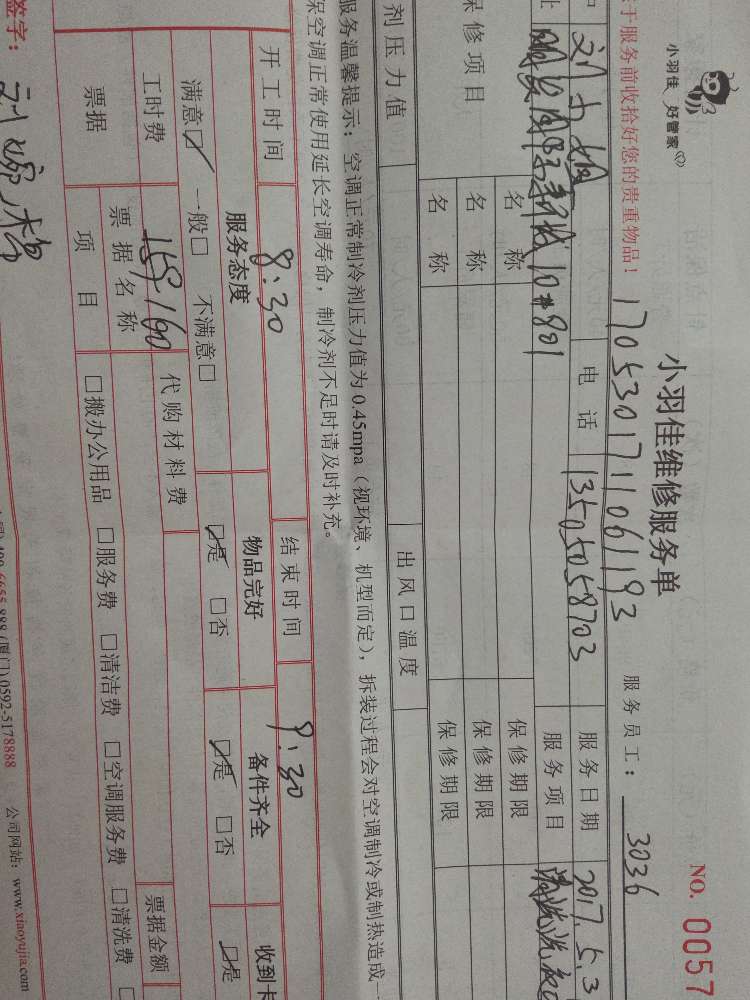 小羽佳 好管家
小羽佳维修服务单
NO. 0057
于服务前收拾好您的贵重物品！
1705301711061193
服务员工： 3036
电话 13505058703 服务日期 2017.5.3
10#801 服务项目
保修项目 名称 保修期限
名称 保修期限
名称 保修期限
剂压力值 出风口温度
服务温馨提示：空调正常制冷剂压力值为 0.45mpa（视环境、机型而定），拆装过程会对空调制冷或制热造成
保空调正常使用延长空调寿命，制冷剂不足时请及时补充。
开工时间 8:30 结束时间 9:30
服务态度 物品完好 备件齐全 收到卡
满意☑ 一般□ 不满意□ ☑是 □否 ☑是 □否 ☑是
工时费 159-160 代购材料费
票据 票据名称 票据金额
项目 □搬办公用品 □服务费 □清洁费 □空调服务费 □清洗费 □
签字：
400-6655-888 (厦门) 0592-5178888 公司网站：www.xiaoyujia.com